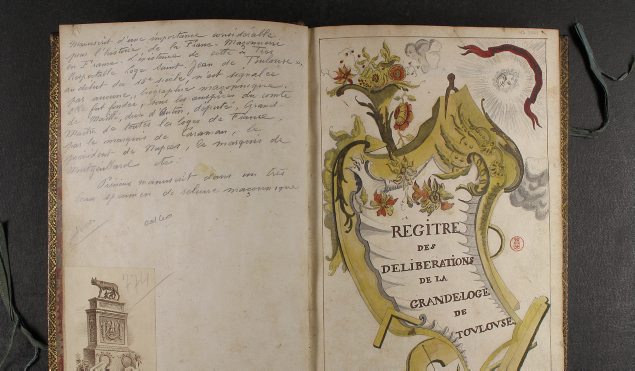 Manuscrit d'une importance considérable
pour l'histoire de la Franc-Maçonnerie
en France. L'existence de cette "Très
Respectable Loge Saint Jean de Toulouse",
au début du 18e siècle, n'est signalée
par aucune biographie maçonnique.
Elle fut fondée, sous les auspices du comte
de Maillé, duc d'Antin, député, Grand
Maître de toutes les loges de France,
par le marquis de Caraman, le
président de Nupces, le marquis de
Montgaillard etc.
Précieux manuscrit dans un très
beau spécimen de reliure maçonnique
774
REGITRE
DES
DELIBERATIONS
DE LA
GRANDELOGE
DE
TOULOUSE